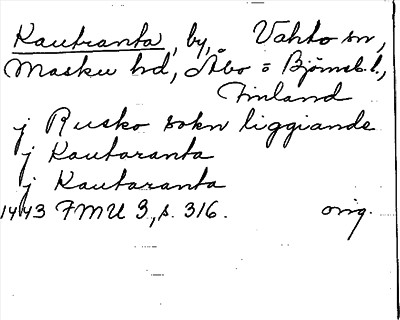 Kautranta, by, Vahto sn,
Masku hd, Åbo o Björneb. l.,
Finland
j Rusko sokn liggiande
j Kautaranta
j Kautaranta
1443 FMU 3, s. 316. orig.